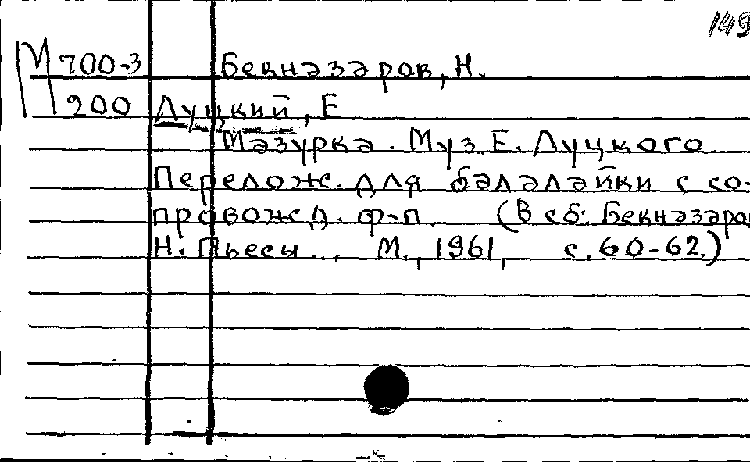 149
М 700-3 Бекназаров, Н.
200 Луцкий, Е
Мазурка. Муз. Е. Луцкого
Перелож. для балалайки с со-
провожд. ф-п. (В сб: Бекназаров
Н. Пьесы., М., 1961, с. 60-62.)